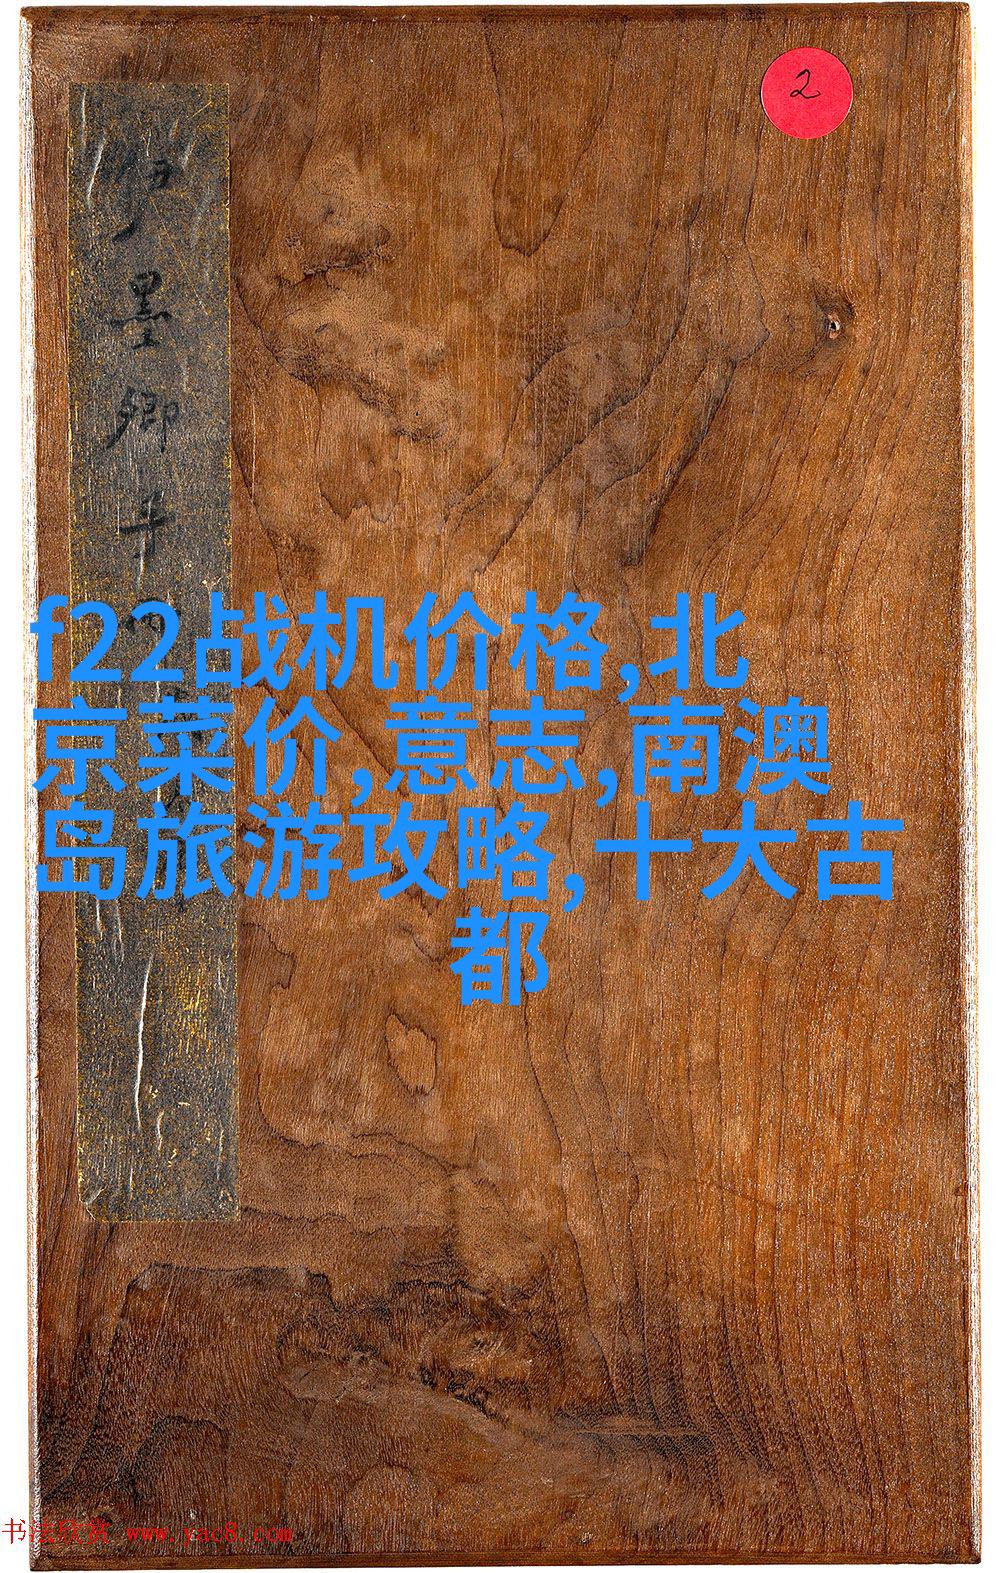 2
墨卿手
f22战机价格,北
京菜价,意志,南澳
岛旅游攻略,十大古
都
书法欣赏 www.yac8.com